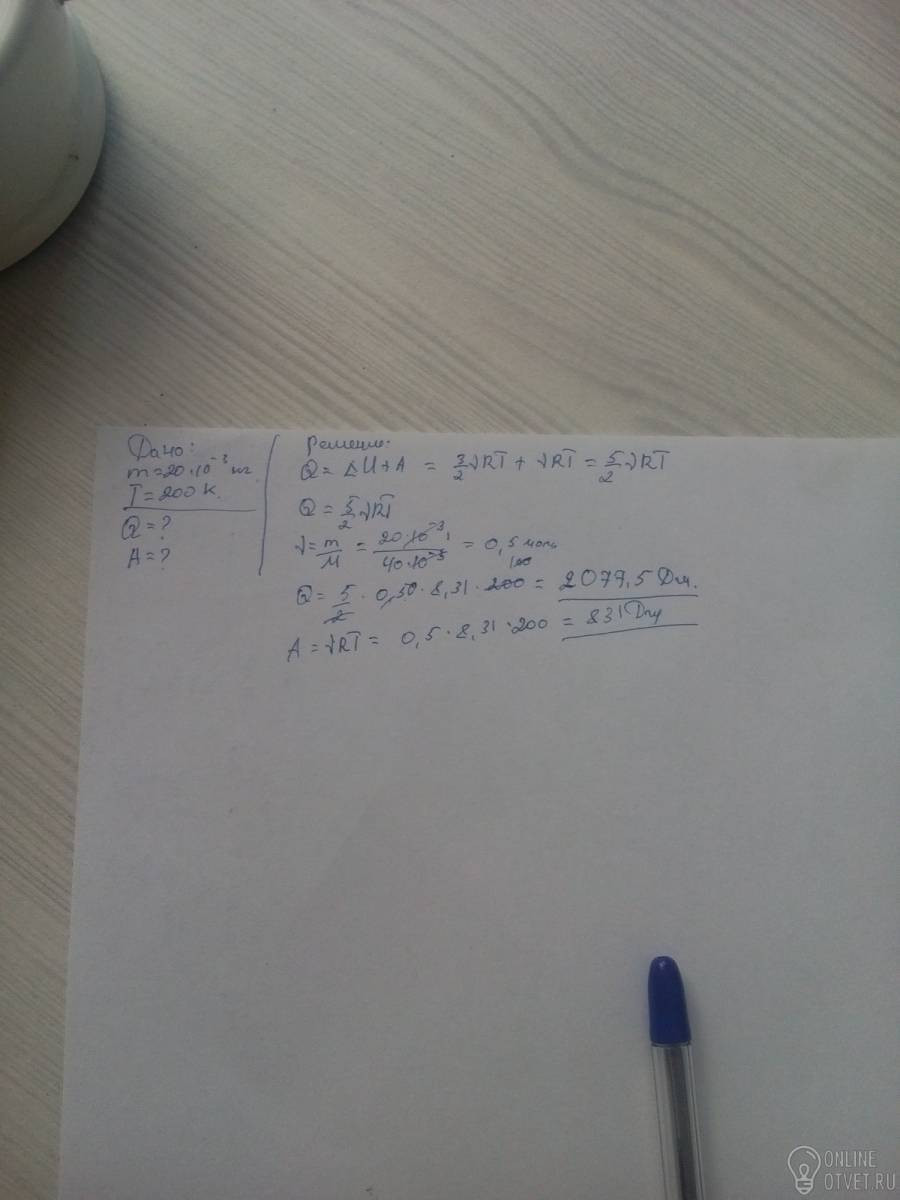 Дано:
m=20·10⁻³ кг
T=200 К.
Q=?
A=?
Решение:
Q = ΔU+A = 3/2 νRT + νRT = 5/2 νRT
Q = 5/2 νRT
ν = m/M = 20·10⁻³/40·10⁻³ = 0,5 моль
100
Q = 5/2 · 0,50 · 8,31 · 200 = 2077,5 Дж.
A = νRT = 0,5 · 8,31 · 200 = 831 Дж
ONLINE
OTVET.RU